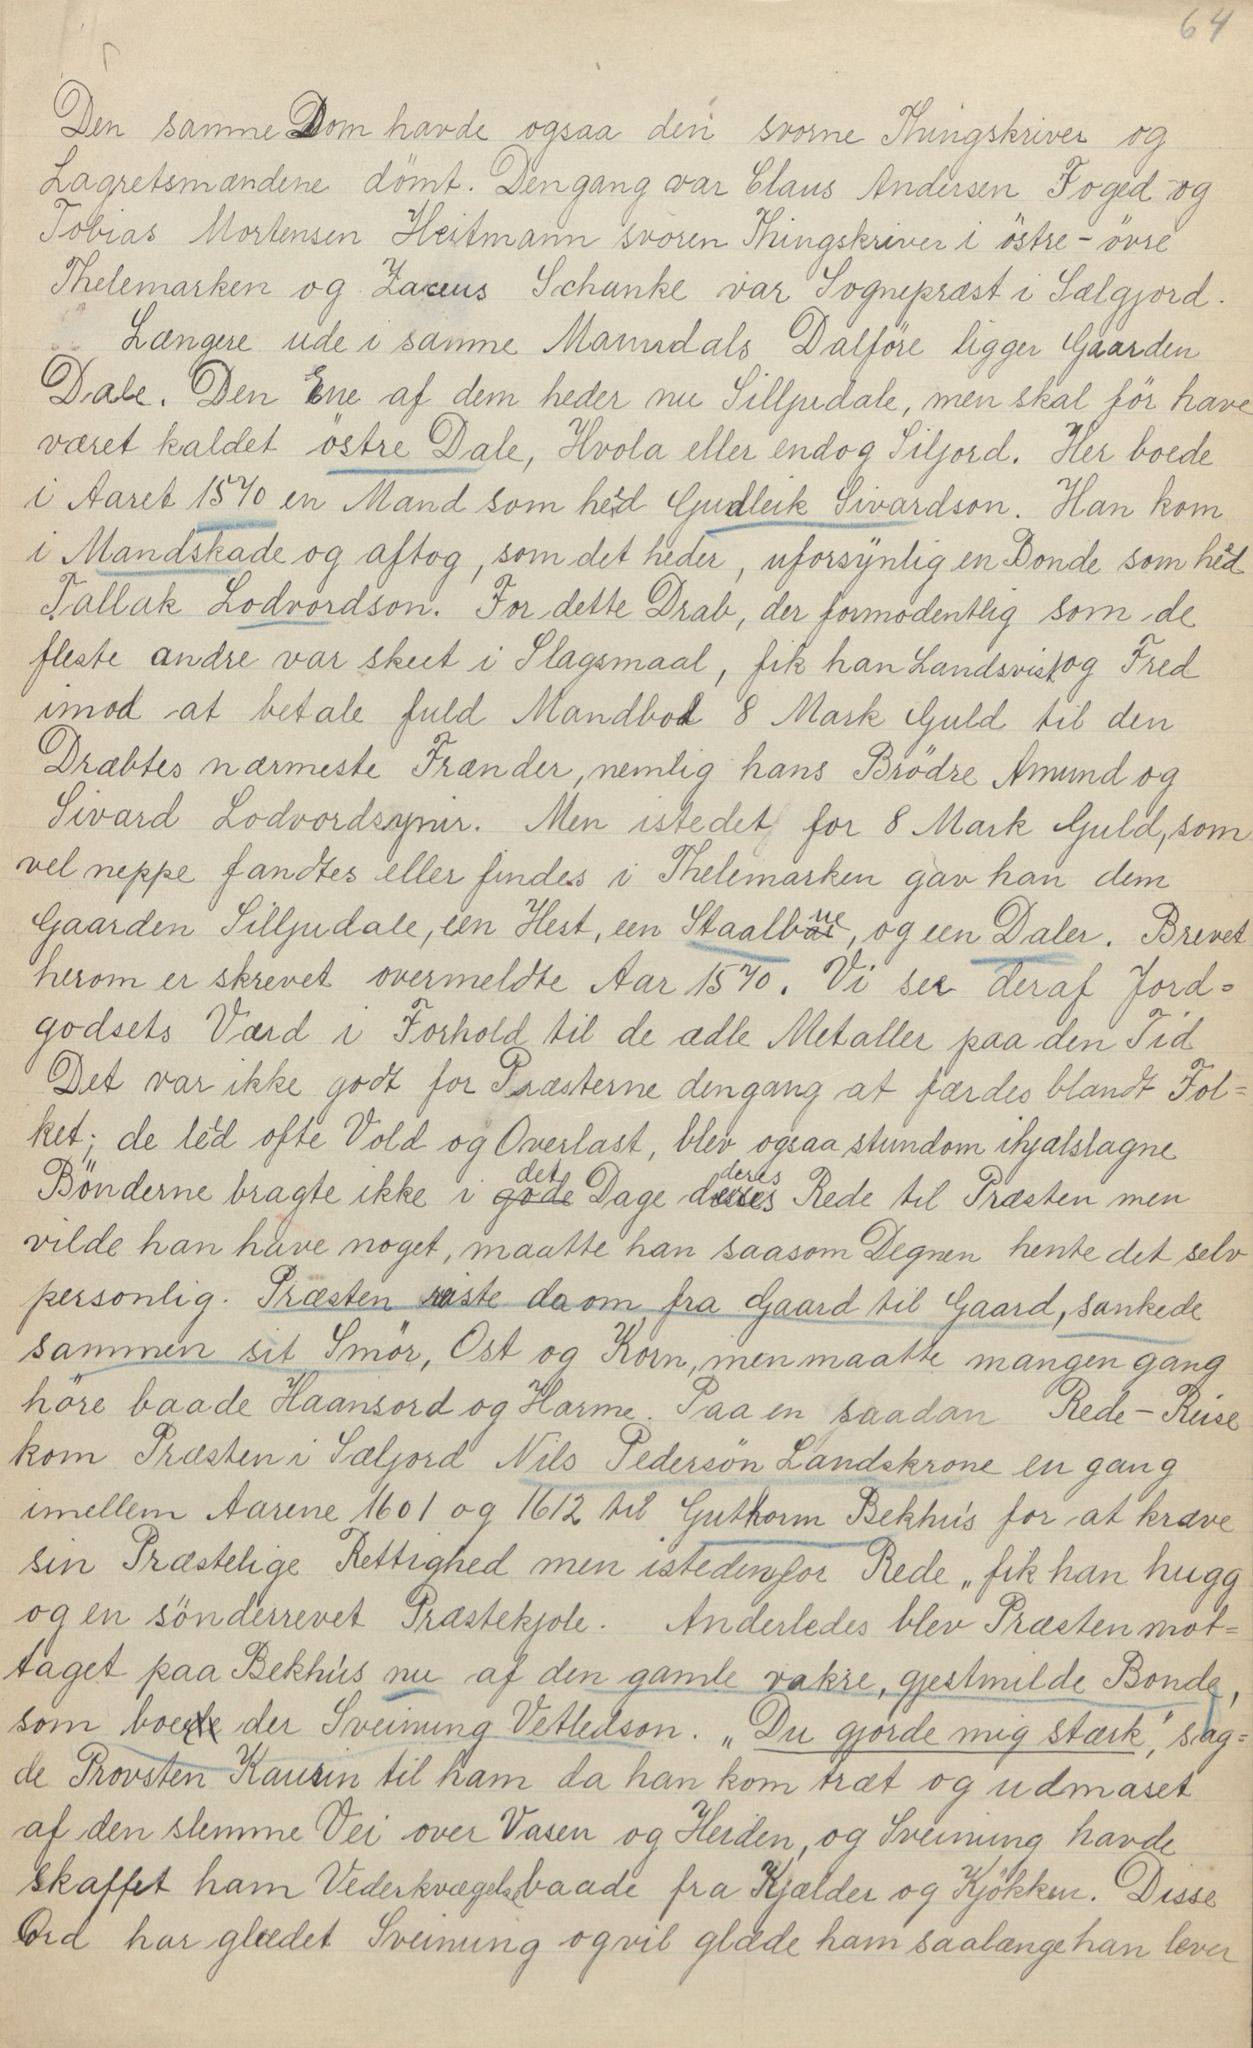 64
Den samme Dom havde ogsaa den svorne Thingskriver og
Lagretsmændene dömt. Dengang var Claus Andersen Foged og
Tobias Mortensen Heitmann svoren Thingskriver i östre-övre
Thelemarken og Zaceus Schanke var Sognepræst i Sælgjord.
Længere ude i samme Mannrdals Dalföre ligger Gaarden
Dale. Den Ene af dem heder nu Silljudale, men skal för have
været kaldet östre Dale, Hvola eller endog Siljord. Her boede
i Aaret 1570 en Mand som hed Gudleik Sivardson. Han kom
i Mandskade og aftog, som det heder, uforsynlig en Bonde som hed
Tallak Lodvordson. For dette Drab, der formodentlig som de
fleste andre var skeet i Slagsmaal, fik han Landsvist og Fred
imod at betale fuld Mandbod 8 Mark Guld til den
Dræbtes nærmeste Frænder, nemlig hans Brödre Amund og
Sivard Lodvordsynir. Men istedet for 8 Mark Guld, som
vel neppe fandtes eller findes i Thelemarken gav han dem
Gaarden Silljudale, een Hest, een Staalbue, og een Daler. Brevet
herom er skrevet overmeldte Aar 1570. Vi see deraf Jord=
godsets Værd i Forhold til de ædle Metaller paa den Tid
Det var ikke godt for Præsterne dengang at færdes blandt Fol=
ket; de led ofte Vold og Overlast, blev ogsaa stundom ihjælslagne
Bönderne bragte ikke i gode det Dage deres Rede til Præsten men
vilde han have noget, maatte han saasom Degnen hente det selv
personlig. Præsten reiste da om fra Gaard til Gaard, sankede
sammen sit Smör, Ost og Korn, men maatte mangen gang
höre baade Haansord og Harme. Paa en saadan Rede-Reise
kom Præsten i Sæljord Nils Pedersön Landskrone en gang
imellem Aarene 1601 og 1612 til Guthorm Bekhus for at kræve
sin Præstelige Rettighed men istedenfor Rede „fik han hugg
og en sönderrevet Præstekjole. Anderledes blev Præsten mot=
taget paa Bekhus nu af den gamle vakre, gjestmilde Bonde,
som boede der Sveinung Vetledson. „Du gjorde mig stærk", sag=
de Provsten Kaurin til ham da han kom træt og udmaset
af den slemme Vei over Vasen og Heiden, og Sveinung havde
skaffet ham Vederkvægelse baade fra Kjælder og Kjökken. Disse
Ord har glædet Sveinung og vil glæde ham saalænge han lever